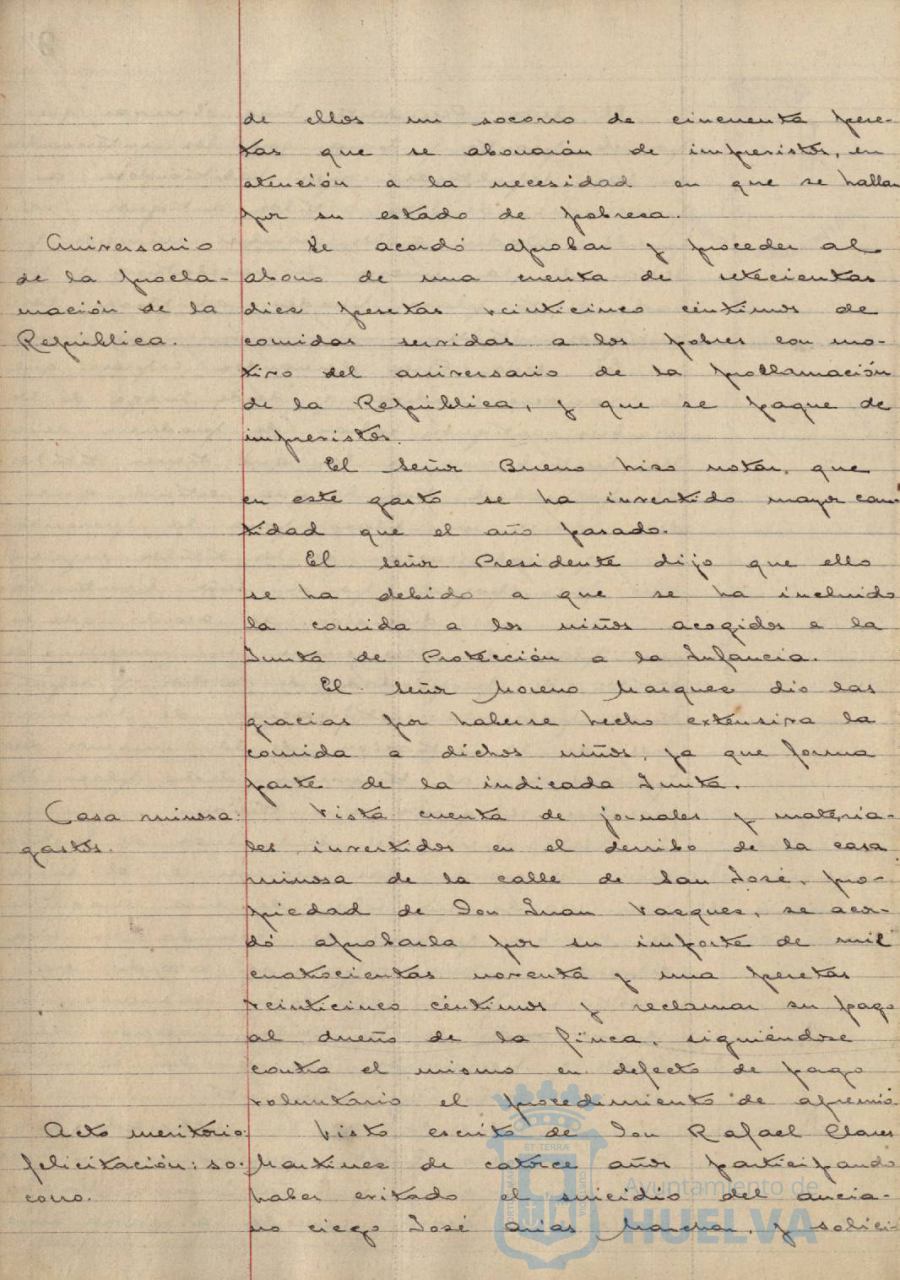 de ellos un socorro de cincuenta pese-
tas que se abonarán de imprevistos, en
atención a la necesidad en que se hallan
por su estado de pobresa.
Aniversario
de la procla-
mación de la
República.
Se acordó aprobar y proceder al
abono de una cuenta de setecientas
dies pesetas veinticinco céntimos de
comidas servidas a los pobres con mo-
tivo del aniversario de la proclamación
de la República, y que se pague de
imprevistos.
El señor Bueno hiso notar, que
en este gasto se ha invertido mayor can-
tidad que el año pasado.
El señor Presidente dijo que ello
se ha debido a que se ha incluido
la comida a los niños acogidos a la
Junta de Protección a la Infancia.
El señor Moreno Marques dio las
gracias por haberse hecho extensiva la
comida a dichos niños, ya que forma
parte de la indicada Junta.
Casa ruinosa:
gastos.
Vista cuenta de jornales y materia-
les invertidos en el derribo de la casa
ruinosa de la calle de San José, pro-
piedad de Don Juan Vasques, se acor-
dó aprobarla por su importe de mil
cuatrocientas noventa y una pesetas
veinticinco céntimos y reclamar su pago
al dueño de la finca, siguiéndose
contra el mismo en defecto de pago
voluntario el procedimiento de apremio.
Acto meritorio:
felicitación: so-
corro.
Visto escrito de Don Rafael Clares
Martines de catorce años participando
haber evitado el suicidio del ancia-
no ciego José Arias Manchar, y solici-
Ayuntamiento de
HUELVA